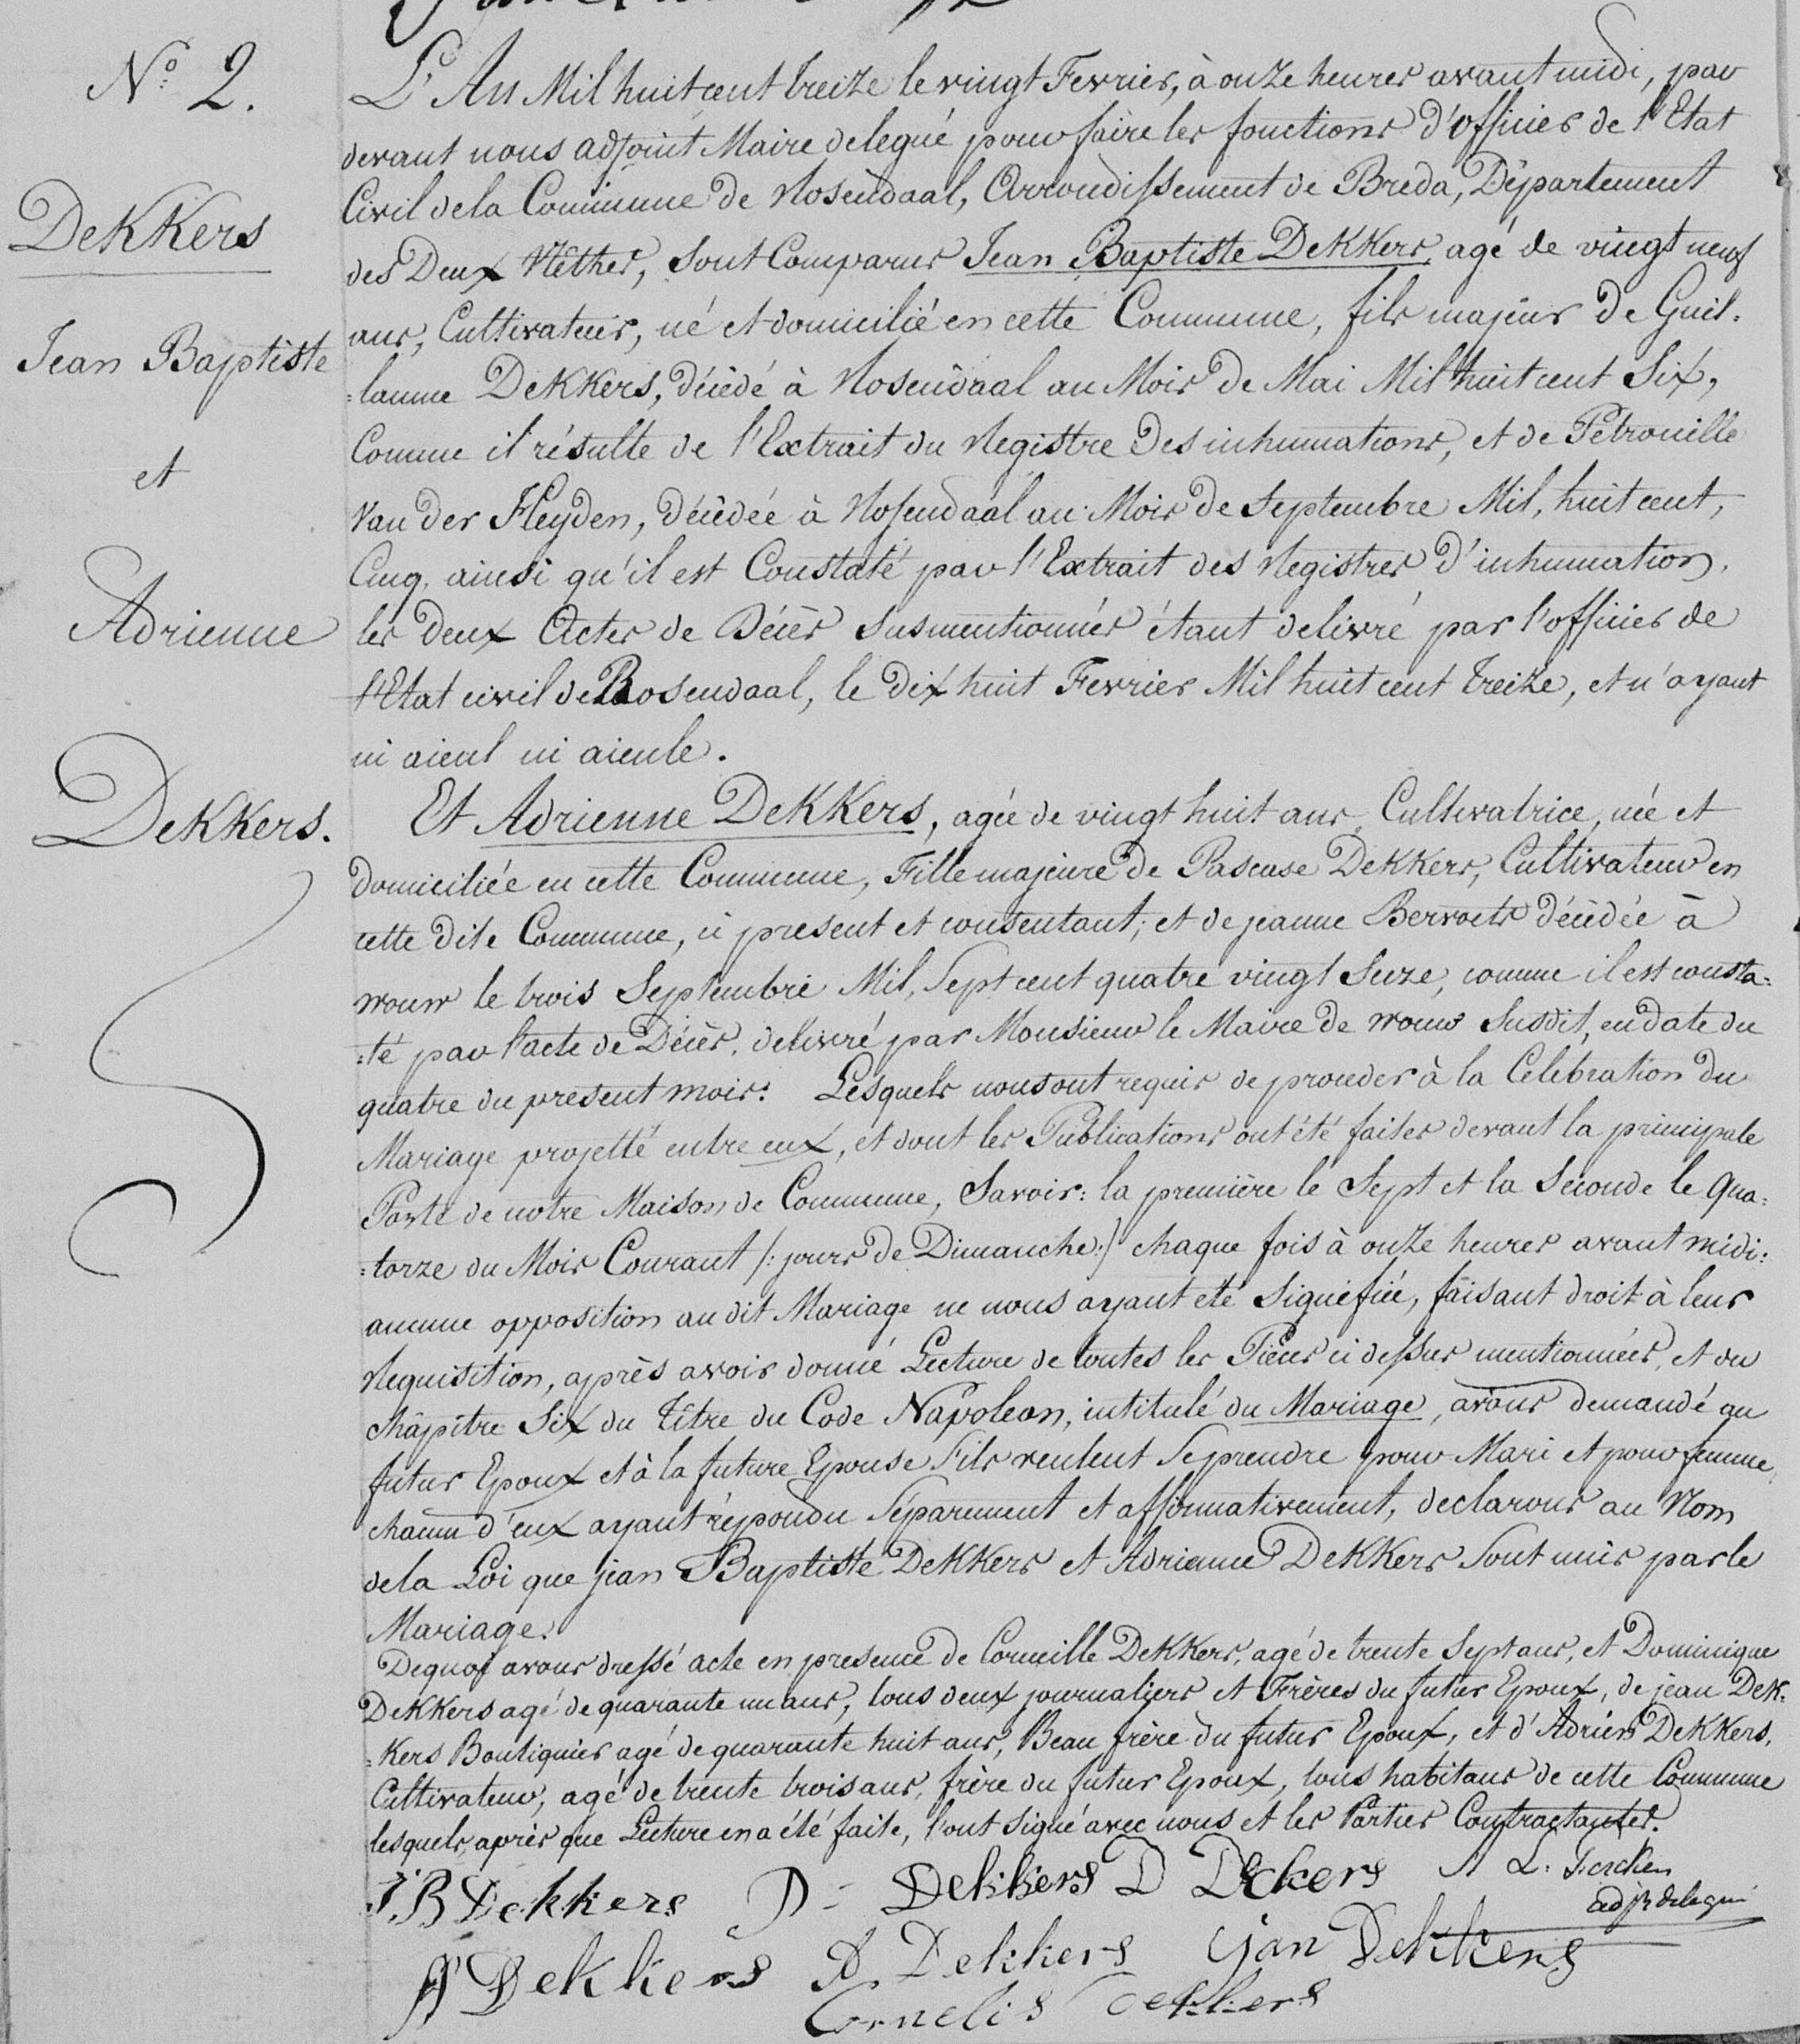 N.º 2.
Dekkers
Jean Baptiste
et
Adrienne
Dekkers.
L'An Mil huit cent treize le vingt Fevrier, à onze heures avant midi, par
devant nous adjoint Maire delegué pour faire les fonctions d'officier de l'Etat
Civil de la Commune de Rosendaal, Arrondissement de Breda, Département
des Deux Nêthes, sont Comparus Jean Baptiste Dekkers, agé de vingt neuf
ans, Cultivateur, né et domicilié en cette Commune, fils majeur de Guil-
=laume Dekkers, décédé à Rosendaal au Mois de Mai Mil huit cent Six,
Comme il résulte de l'Extrait du Registre des inhumations, et de Pétronille
Van der Heyden, décédée à Rosendaal au Mois de Septembre Mil, huit cent,
Cinq, ainsi qu'il est Constaté par l'Extrait des Registres d'inhumation.
les deux Actes de Décès susmentionnés étant delivré par l'officier de
l'Etat civil de Rosendaal, le dix huit Fevrier Mil huit cent treize, et n'ayant
ni aieul ni aieule.
Et Adrienne Dekkers, agée de vingt huit ans, Cultivatrice, née et
domiciliée en cette Commune, Fille majeure de Pascase Dekkers, Cultivateur en
cette dite Commune, ci present et consentant; et de jeanne Bervoets décédée à
wouw le trois Septembre Mil, Sept cent quatre vingt Seize, comme il est consta=
=té par l'acte de Décès, delivré par Monsieur le Maire de wouw Susdit, en date du
quatre du present mois. Lesquels nous ont requis de proceder à la Celebration du
Mariage projetté entre eux, et dont les Publications ont été faites devant la principale
Porte de notre Maison de Commune, Savoir: la première le Sept et la Seconde le Qua=
=torze du Mois Courant /: jours de Dimanche:/ chaque fois à onze heures avant midi:
aucune opposition au dit Mariage ne nous ayant eté signéfiée, faisant droit à leur
Requisition, après avoir donné Lecture de toutes les Pièces ci dessus mentionnées, et du
châpître Six du Tître du Code Napoleon, intitulé du Mariage, avons demandé au
futur Epoux et à la future Epouse s'ils veulent se prendre pour Mari et pour femme,
chacun d'eux ayant répondu Séparement et affirmativement, declarons au Nom
de la Loi que jean Baptiste Dekkers et Adrienne Dekkers Sont unis par le
Mariage.
Dequoi avons dressé acte en presence de Corneille Dekkers, agé de trente Sept ans, et Dominique
Dekkers agé de quarante un ans, tous deux journaliers et Frères du futur Epoux, de jean Dek-
=kers Boutiquier agé de quarante huit ans, Beau frère du futur Epoux, et d'Adrien Dekkers,
Cultivateur, agé de trente trois ans, frère du futur Epoux, tous habitans de cette Commune
lesquels, après que Lecture en a été faite, l'ont signé avec nous et les Parties Contractantes.
J,B Dekkers P = Dekkers D Dekers
adj.t delegué
A Dekkers A, Dekkers Jan Dekkers
Cornelis Dekkers